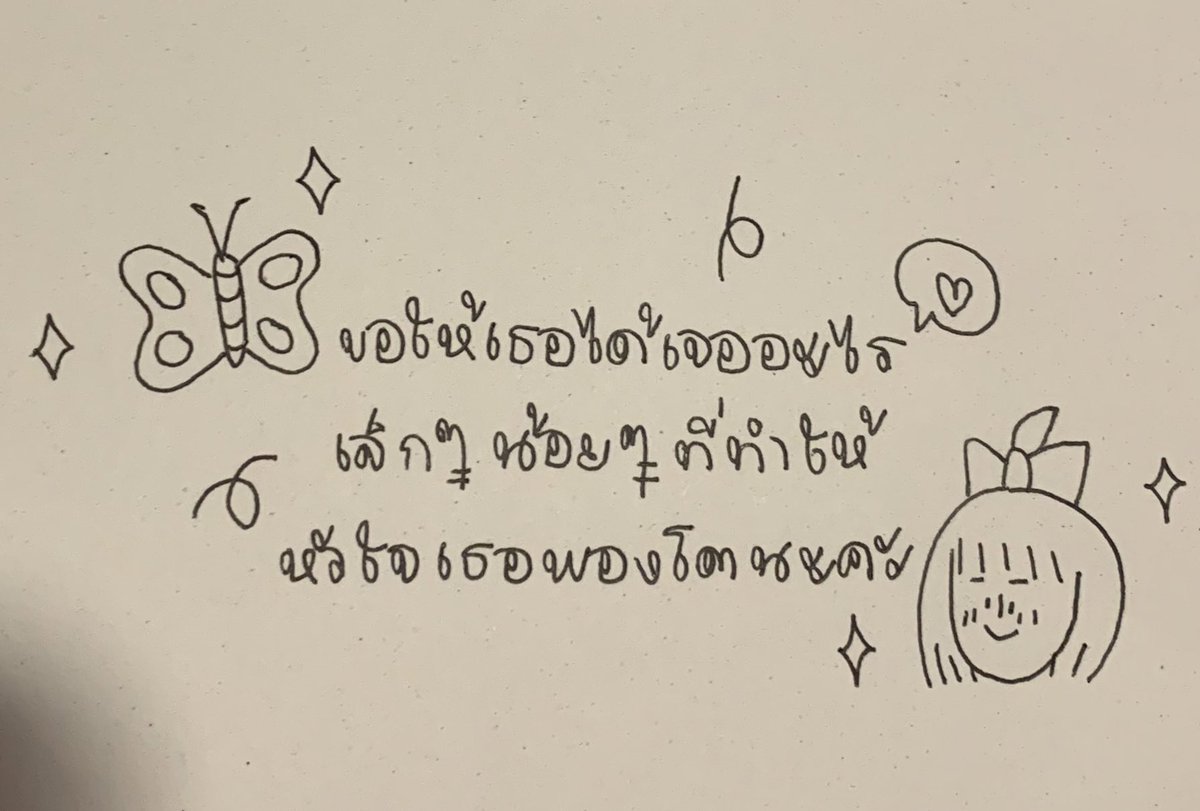 ขอให้เธอได้เจออะไร
เล็กๆ น้อยๆ ที่ทำให้
หัวใจเธอพองโตนะคะ